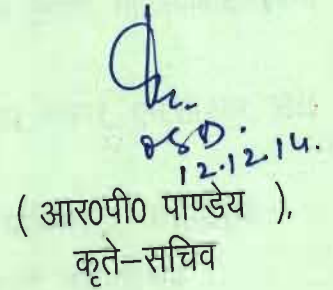 OSD.
12.12.14.
( आर०पी० पाण्डेय ),
कृते–सचिव